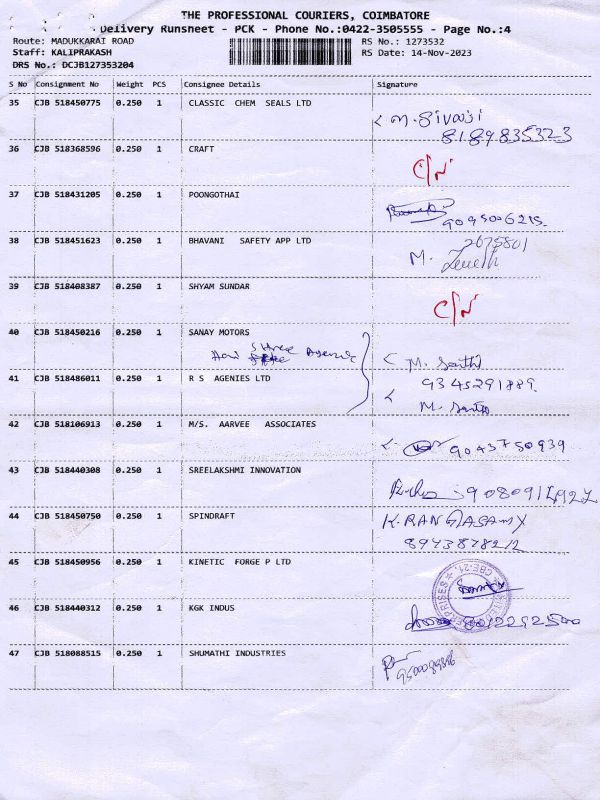 THE PROFESSIONAL COURIERS, COIMBATORE
Delivery Runsheet - PCK - Phone No.:0422-3505555 - Page No.:4
Route: MADUKKARAI ROAD RS No.: 1273532
Staff: KALIPRAKASH RS Date: 14-Nov-2023
DRS No.: DCJB127353204
S No Consignment No Weight PCS Consignee Details Signature
35 CJB 518450775 0.250 1 CLASSIC CHEM SEALS LTD
M. Sivaji
8189835323
36 CJB 518368596 0.250 1 CRAFT
C/N
37 CJB 518431205 0.250 1 POONGOTHAI
9095006215.
38 CJB 518451623 0.250 1 BHAVANI SAFETY APP LTD
2675801
M.
39 CJB 518408387 0.250 1 SHYAM SUNDAR
C/N
40 CJB 518450216 0.250 1 SANAY MOTORS
Shree
M. Santhi
41 CJB 518486011 0.250 1 R S AGENIES LTD
9345291889.
M. Santhi
42 CJB 518106913 0.250 1 M/S. AARVEE ASSOCIATES
9043750939
43 CJB 518440308 0.250 1 SREELAKSHMI INNOVATION
44 CJB 518450750 0.250 1 SPINDRAFT
K. RANGASAMY
8943878212
45 CJB 518450956 0.250 1 KINETIC FORGE P LTD
CBE-21.
46 CJB 518440312 0.250 1 KGK INDUS
47 CJB 518088515 0.250 1 SHUMATHI INDUSTRIES